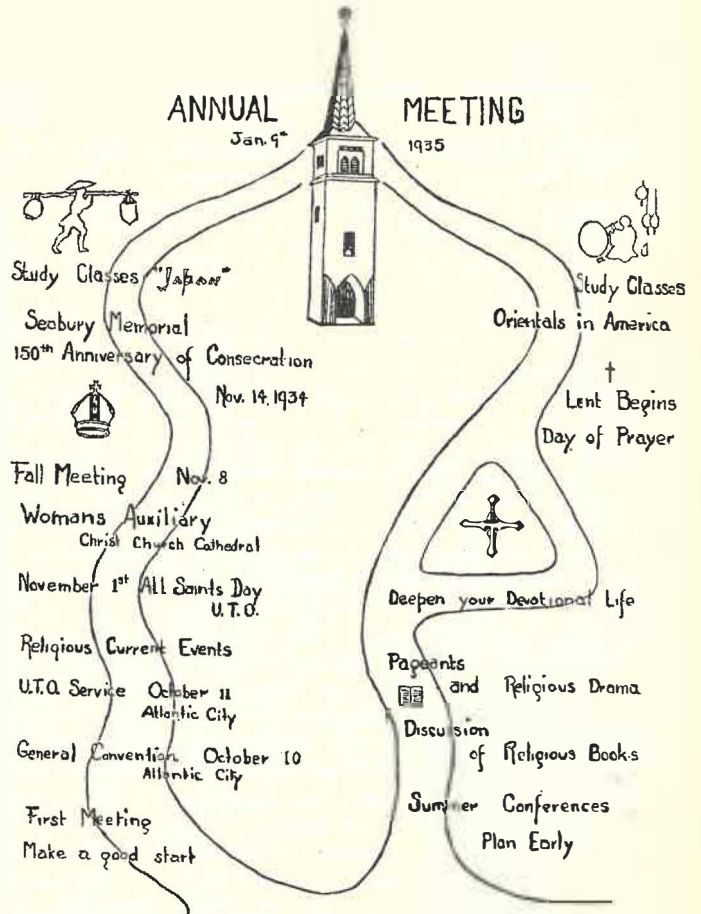 ANNUAL MEETING
Jan. 9th 1935
Study Classes "Japan"
Seabury Memorial
150th Anniversary of Consecration
Nov. 14, 1934
Fall Meeting Nov. 8
Womans Auxiliary
Christ Church Cathedral
November 1st All Saints Day
U.T.O.
Religious Current Events
U.T.O. Service October 11
Atlantic City
General Convention October 10
Atlantic City
First Meeting
Make a good start
Study Classes
Orientals in America
Lent Begins
Day of Prayer
Deepen your Devotional Life
Pageants
and Religious Drama
Discussion
of Religious Books
Summer Conferences
Plan Early